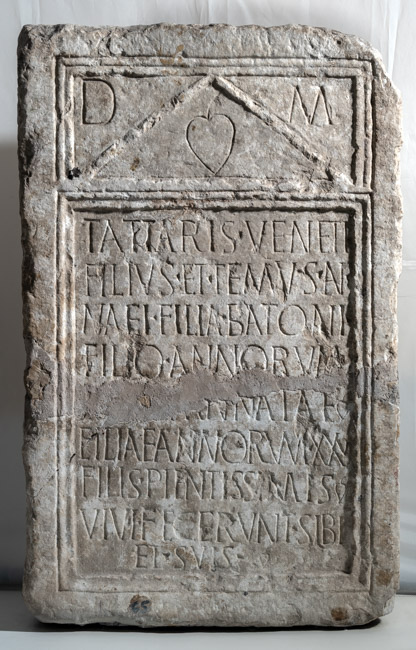 D M
TATTARIS·VENETI
FILIVS·ET·TEMVS·AN
NAEI·FILIA·BATONI
FILIO·ANNORVM
FILIAE ANNORVM XX
FILIS PIENTISSIMIS
VIVI FECERVNT·SIBI
ET·SVIS·